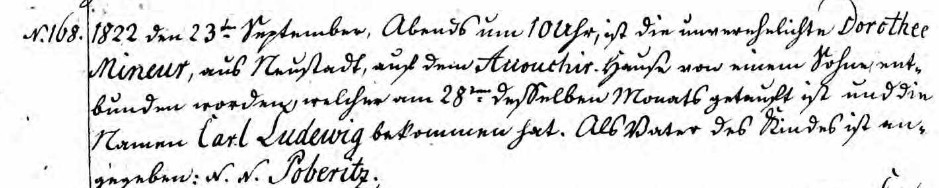 N. 168. 1822 den 23ten September, Abends um 10 Uhr, ist die unverehelichte Dorothee
Mineur, aus Neustadt, auf dem Accouchir-Hause von einem Sohne, ent-
bunden worden, welcher am 28ten desselben Monats getauft ist und die
Namen Carl Ludewig bekommen hat. Als Vater des Kindes ist an-
gegeben: N. N. Poberitz.